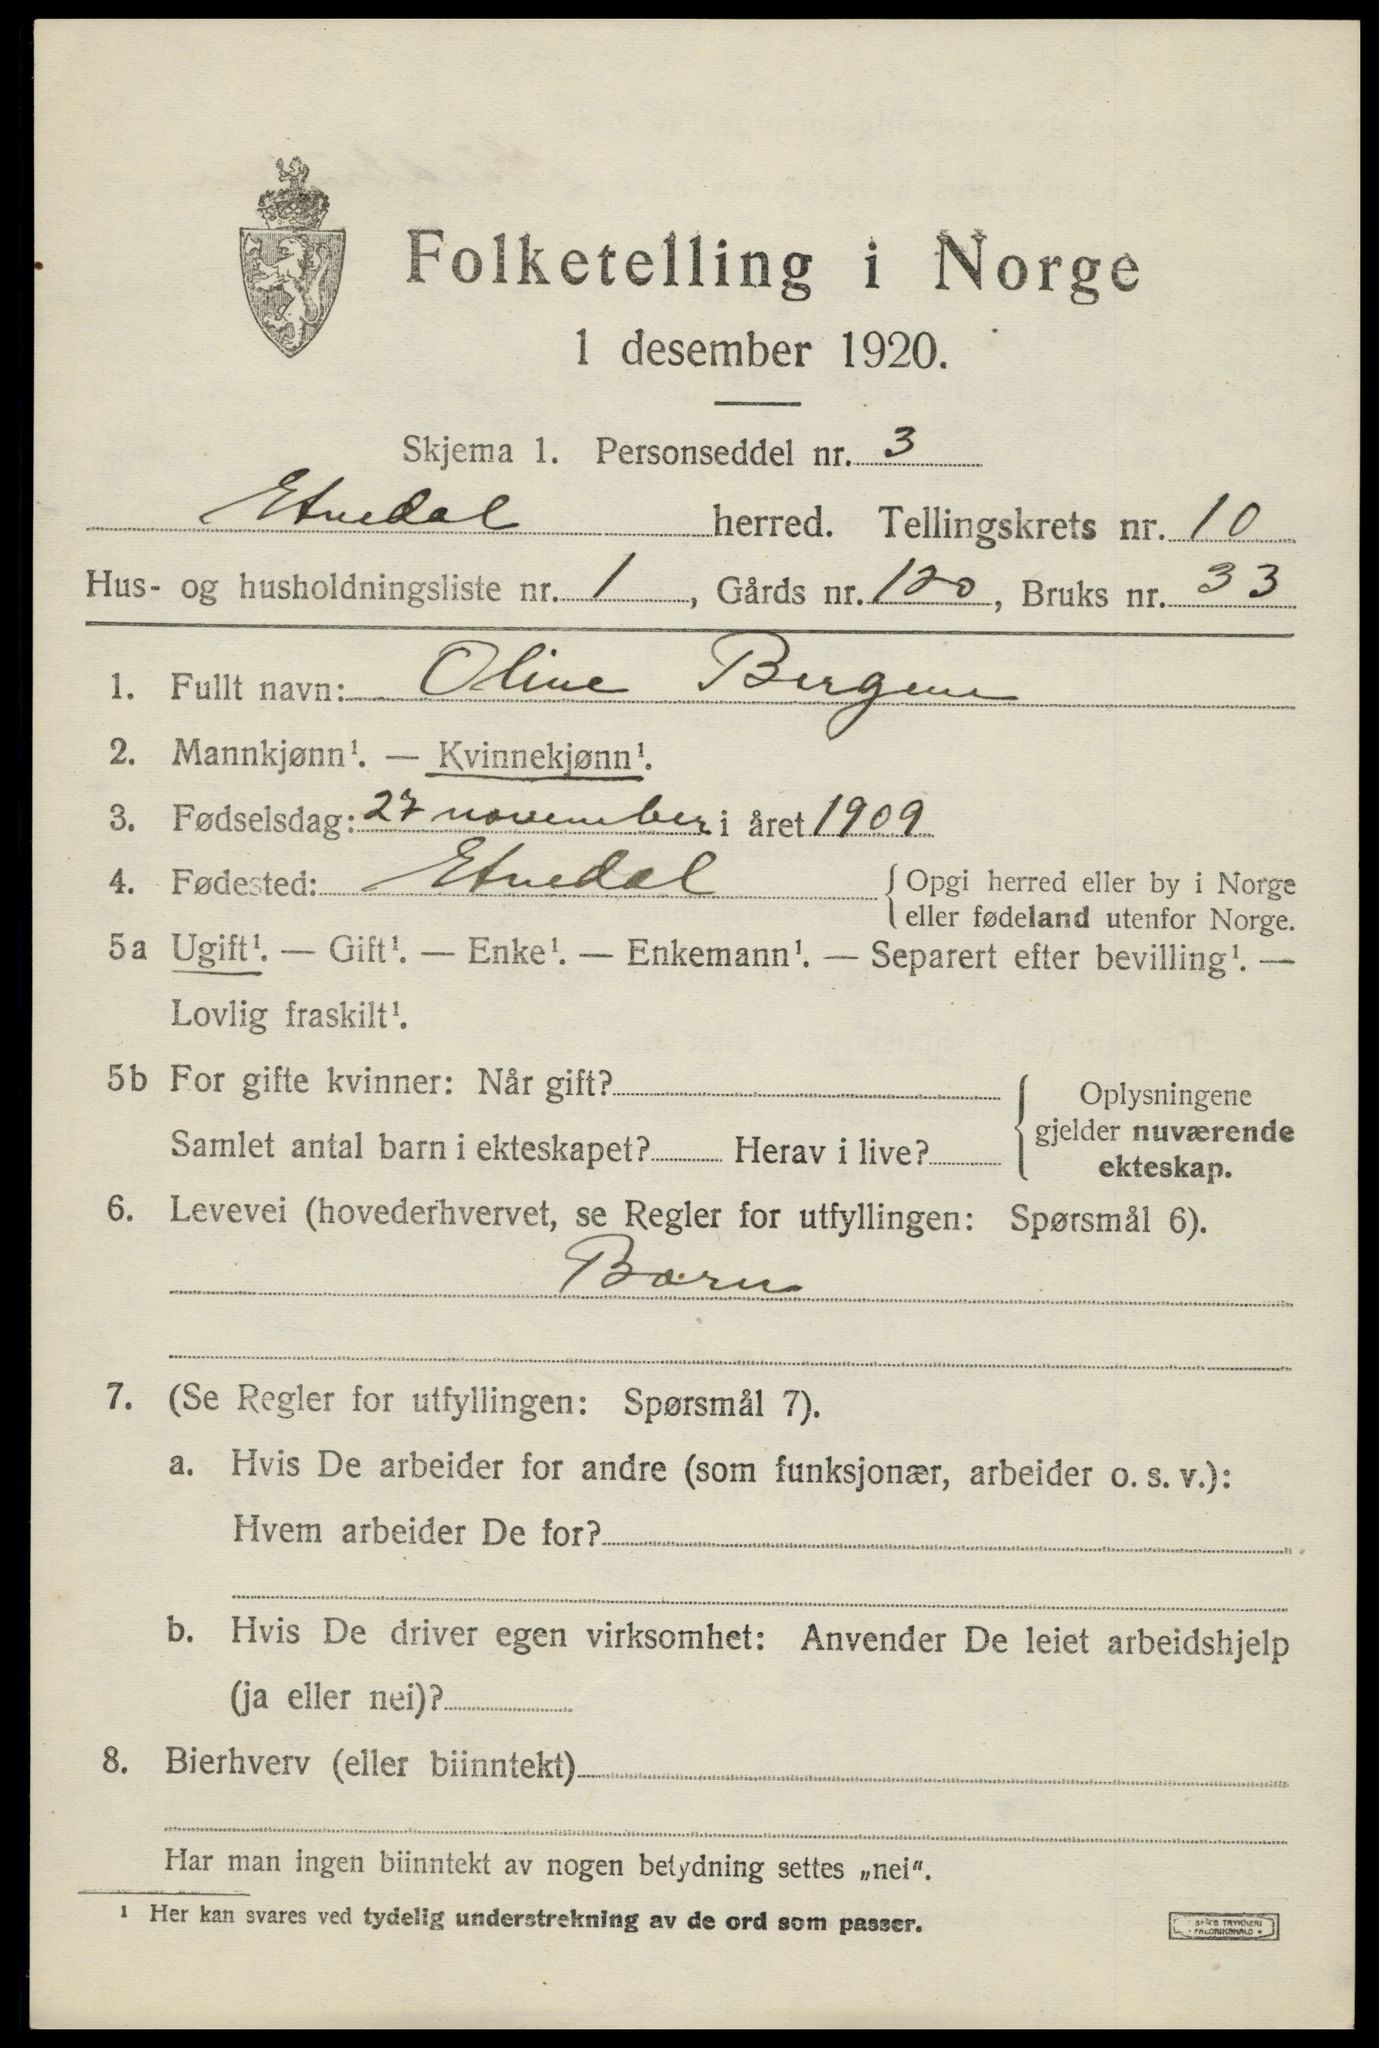 Folketelling i Norge
1 desember 1920.
Skjema 1. Personseddel nr. 3
Etnedal herred. Tellingskrets nr. 10
Hus- og husholdningsliste nr. 1, Gårds nr. 120, Bruks nr. 33
1. Fullt navn: Oline Bergene
2. Mannkjønn¹. — Kvinnekjønn¹.
3. Fødselsdag: 27 november i året 1909
4. Fødested: Etnedal {Opgi herred eller by i Norge
eller fødeland utenfor Norge.
5a Ugift¹. — Gift¹. — Enke¹. — Enkemann¹. — Separert efter bevilling¹. —
Lovlig fraskilt¹.
5b For gifte kvinner: Når gift?
Samlet antal barn i ekteskapet? Herav i live?
Oplysningene
gjelder nuværende
ekteskap.
6. Levevei (hovederhvervet, se Regler for utfyllingen: Spørsmål 6).
Barn
7. (Se Regler for utfyllingen: Spørsmål 7).
a. Hvis De arbeider for andre (som funksjonær, arbeider o. s. v.):
Hvem arbeider De for?
b. Hvis De driver egen virksomhet: Anvender De leiet arbeidshjelp
(ja eller nei)?
8. Bierhverv (eller biinntekt)
Har man ingen biinntekt av nogen betydning settes „nei".
1 Her kan svares ved tydelig understrekning av de ord som passer.
TRYKKERI
FREDRIKSHALD